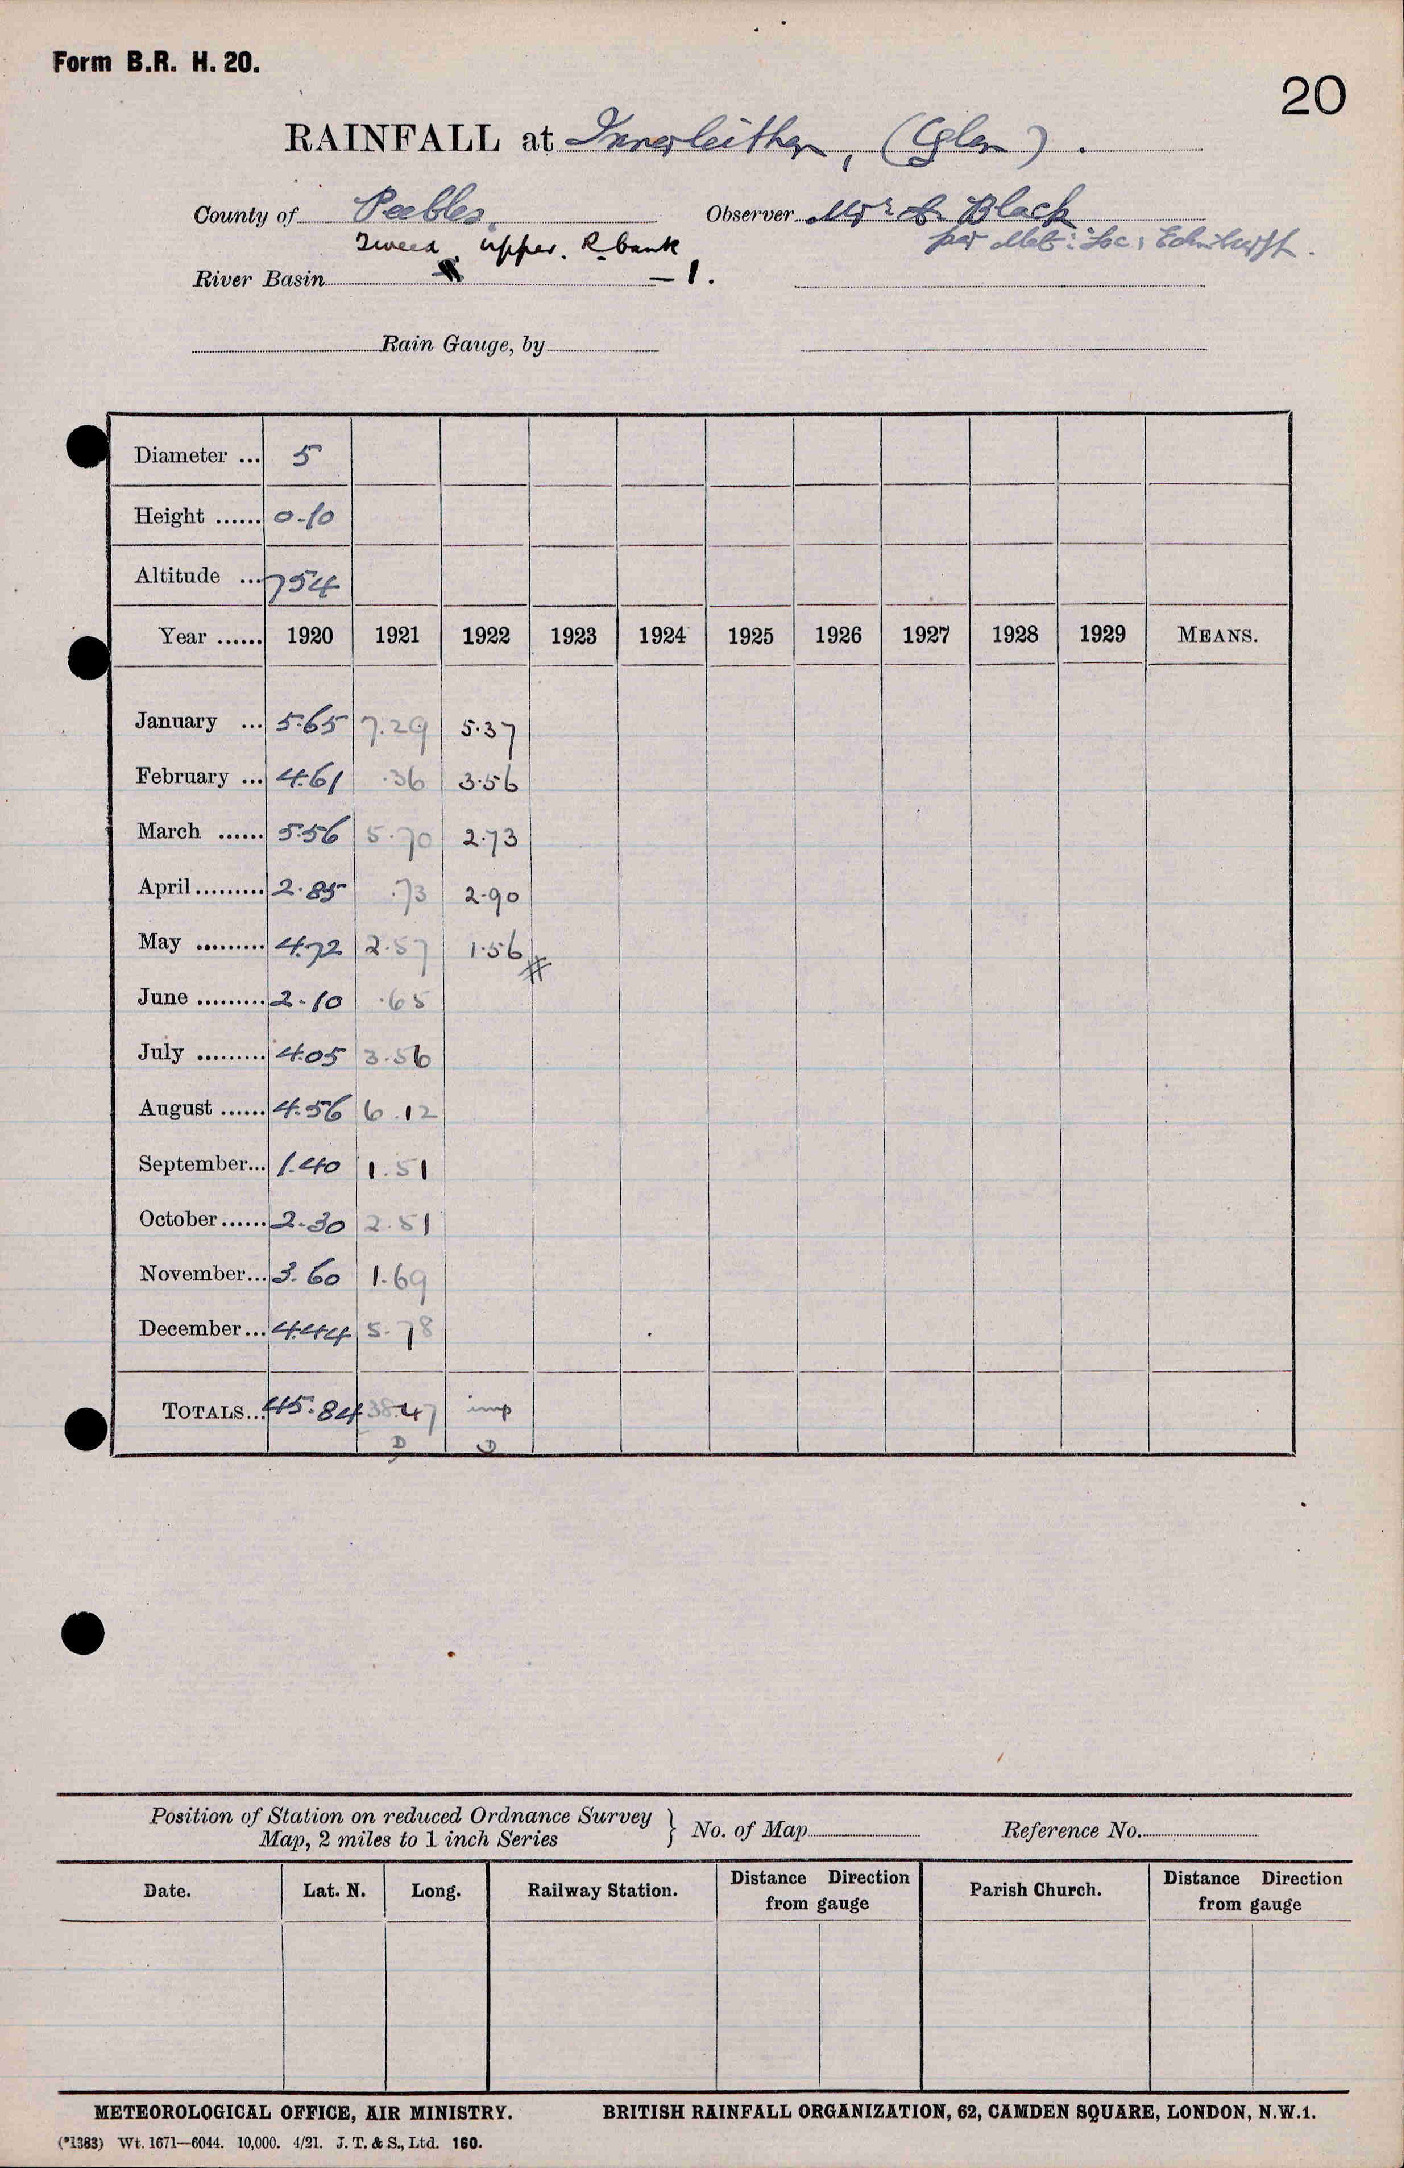 Form B.R. H. 20.
20
RAINFALL at Innerleithen, (Glen).
County of Peebles. Observer Mr. A. Black
Tweed, upper. R. bank per Met: Soc: Edinburgh.
River Basin —1.
Rain Gauge, by
Diameter ... 5
Height ...... 0-10
Altitude ... 754
Year ...... 1920 1921 1922 1923 1924 1925 1926 1927 1928 1929 MEANS.
January ... 5.65 7.29 5.37
February ... 4.61 .36 3.56
March ...... 5.56 5.70 2.73
April ......... 2.85 .73 2.90
May ......... 4.72 2.57 1.56 #
June ......... 2.10 .65
July ......... 4.05 3.56
August ...... 4.56 6.12
September... 1.40 1.51
October ...... 2.30 2.51
November... 3.60 1.69
December ... 4.44 5.78
TOTALS... 45.84 38.47 imp
D D
Position of Station on reduced Ordnance Survey
Map, 2 miles to 1 inch Series } No. of Map Reference No.
Date. Lat. N. Long. Railway Station. Distance Direction from gauge Parish Church. Distance Direction from gauge
METEOROLOGICAL OFFICE, AIR MINISTRY. BRITISH RAINFALL ORGANIZATION, 62, CAMDEN SQUARE, LONDON, N.W.1.
(*1383) Wt. 1671—6044. 10,000. 4/21. J. T. & S., Ltd. 160.